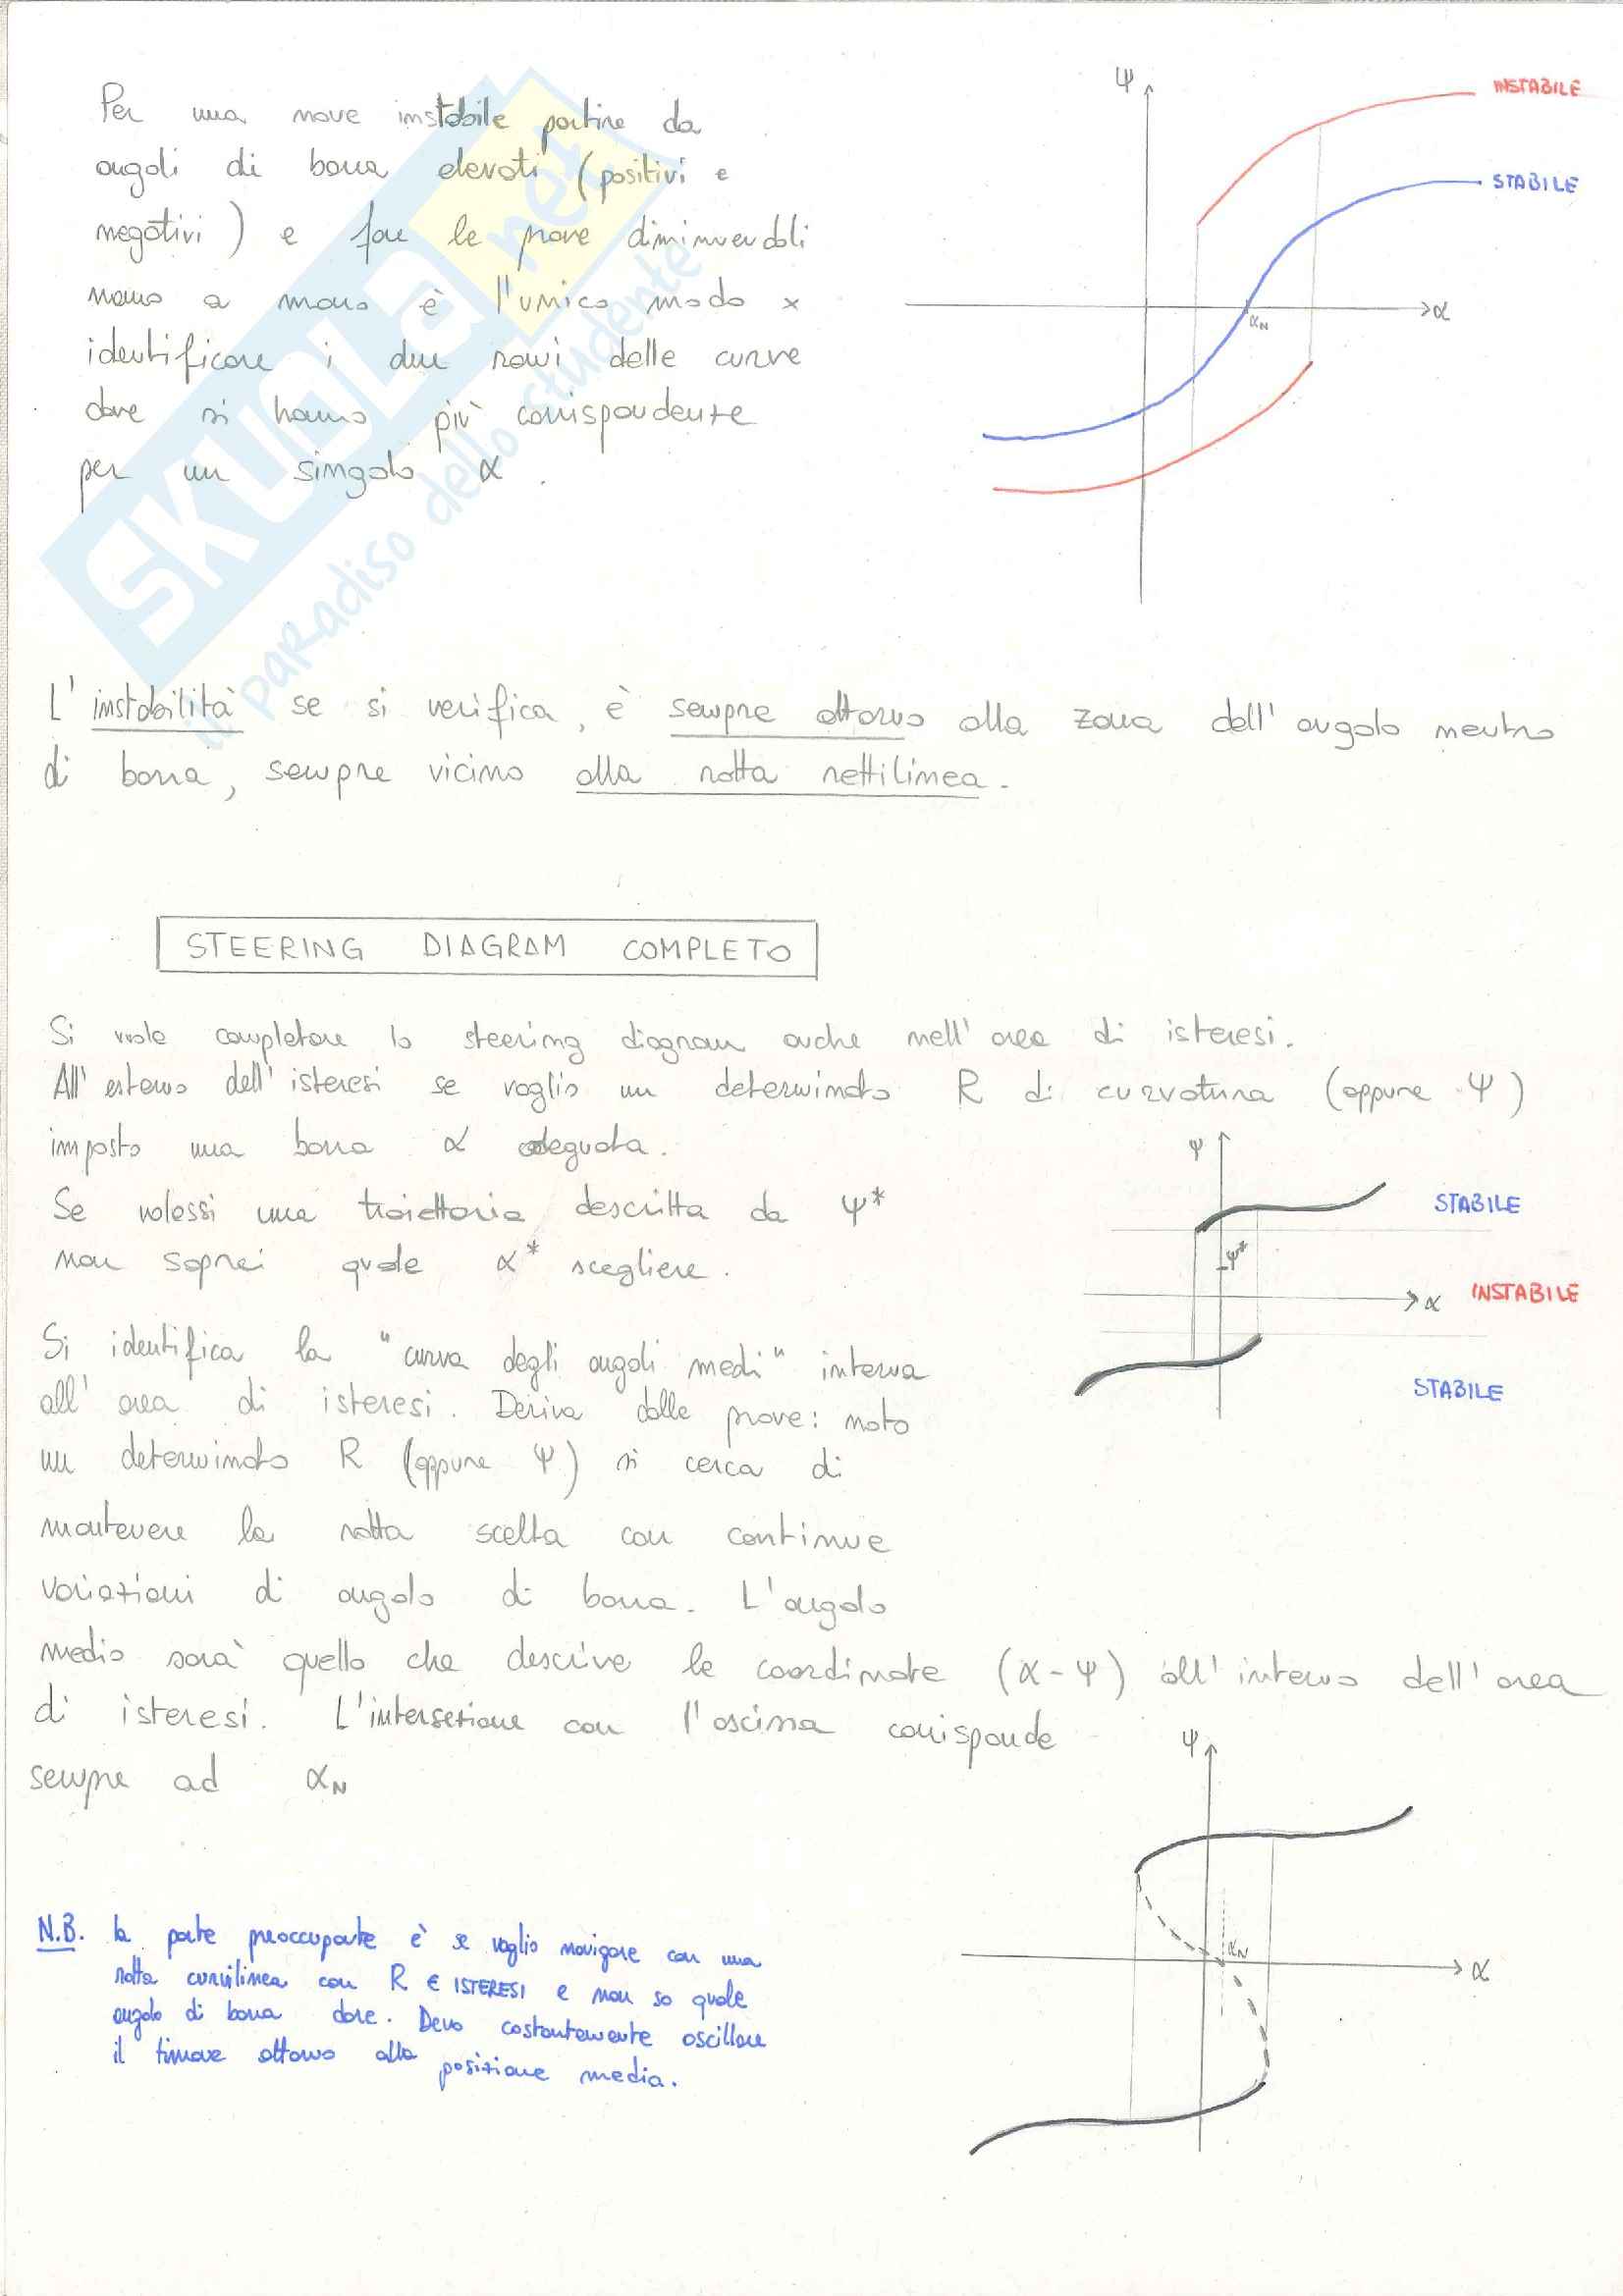 Per una nave instabile partire da
angoli di barra elevati (positivi e
negativi) e fare le prove diminuendoli
mano a mano è l'unico modo x
identificare i due rami delle curve
dove si hanno più corrispondente
per un singolo α.
Ψ
INSTABILE
STABILE
α
αN
SKUOLA.net
il paradiso dello studente
L'instabilità se si verifica, è sempre attorno alla zona dell'angolo neutro
di barra, sempre vicino alla rotta rettilinea.
STEERING DIAGRAM COMPLETO
Si vuole completare lo steering diagram anche nell'area di isteresi.
All'esterno dell'isteresi se voglio un determinato R di curvatura (oppure Ψ)
imposto una barra α adeguata.
Se volessi una traiettoria descritta da Ψ*
non saprei quale α* scegliere.
Ψ
STABILE
Ψ*
α
INSTABILE
STABILE
Si identifica la "curva degli angoli medi" interna
all'area di isteresi. Deriva dalle prove: noto
un determinato R (oppure Ψ) si cerca di
mantenere la rotta scelta con continue
variazioni di angolo di barra. L'angolo
medio sarà quello che descrive le coordinate (α-Ψ) all'interno dell'area
di isteresi. L'intersezione con l'ascissa corrisponde
sempre ad αN
Ψ
αN
α
N.B. la parte preoccupante è se voglio navigare con una
rotta curvilinea con R ∈ ISTERESI e non so quale
angolo di barra dare. Devo costantemente oscillare
il timone attorno alla posizione media.